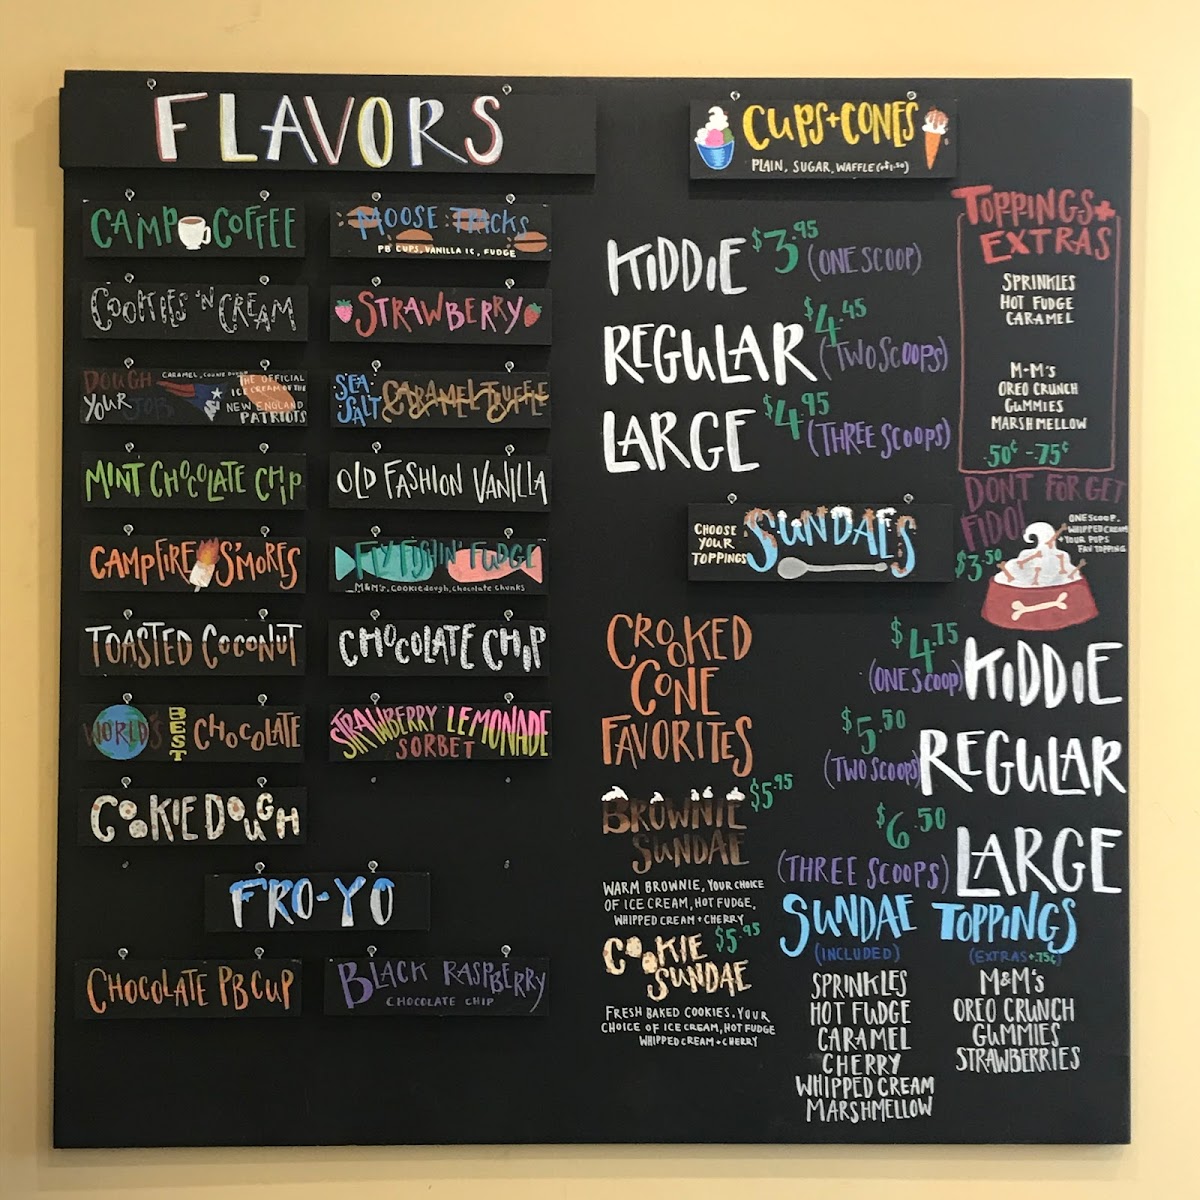 FLAVORS
CAMP COFFEE
COOKIES 'N CREAM
DOUGH
YOUR JOB
CARAMEL, COOKIE DOUGH
THE OFFICIAL
ICE CREAM OF THE
NEW ENGLAND
PATRIOTS
MINT CHOCOLATE CHIP
CAMPFIRE S'MORES
TOASTED COCONUT
WORLD'S BEST CHOCOLATE
COOKIE DOUGH
MOOSE TRACKS
PB CUPS, VANILLA IC, FUDGE
STRAWBERRY
SEA
SALT CARAMEL TRUFFLE
OLD FASHION VANILLA
FLY FISHIN' FUDGE
M&M's, Cookiedough, Chocolate Chunks
CHOCOLATE CHIP
STRAWBERRY LEMONADE
SORBET
FRO-YO
CHOCOLATE PB CUP
BLACK RASPBERRY
CHOCOLATE CHIP
CUPS + CONES
PLAIN, SUGAR, WAFFLE
KIDDIE $3.95 (ONE SCOOP)
REGULAR $4.45 (TWO SCOOPS)
LARGE $4.95 (THREE SCOOPS)
TOPPINGS +
EXTRAS
SPRINKLES
HOT FUDGE
CARAMEL
M-M's
OREO CRUNCH
GUMMIES
MARSHMELLOW
.50¢ - 75¢
DONT FORGET
FIDO!
ONE SCOOP,
WHIPPED CREAM
YOUR PUPS
FAV TOPPING
$3.50
CHOOSE
YOUR
TOPPINGS
SUNDAES
$4.75
(ONE SCOOP) KIDDIE
$5.50
(TWO SCOOPS) REGULAR
$6.50
(THREE SCOOPS) LARGE
CROOKED
CONE
FAVORITES
BROWNIE $5.95
SUNDAE
WARM BROWNIE, YOUR CHOICE
OF ICE CREAM, HOT FUDGE,
WHIPPED CREAM + CHERRY
COOKIE $5.95
SUNDAE
FRESH BAKED COOKIES, YOUR
CHOICE OF ICE CREAM, HOT FUDGE
WHIPPED CREAM + CHERRY
SUNDAE TOPPINGS
(INCLUDED)
SPRINKLES
HOT FUDGE
CARAMEL
CHERRY
WHIPPED CREAM
MARSHMELLOW
(EXTRAS +.75¢)
M&M's
OREO CRUNCH
GUMMIES
STRAWBERRIES